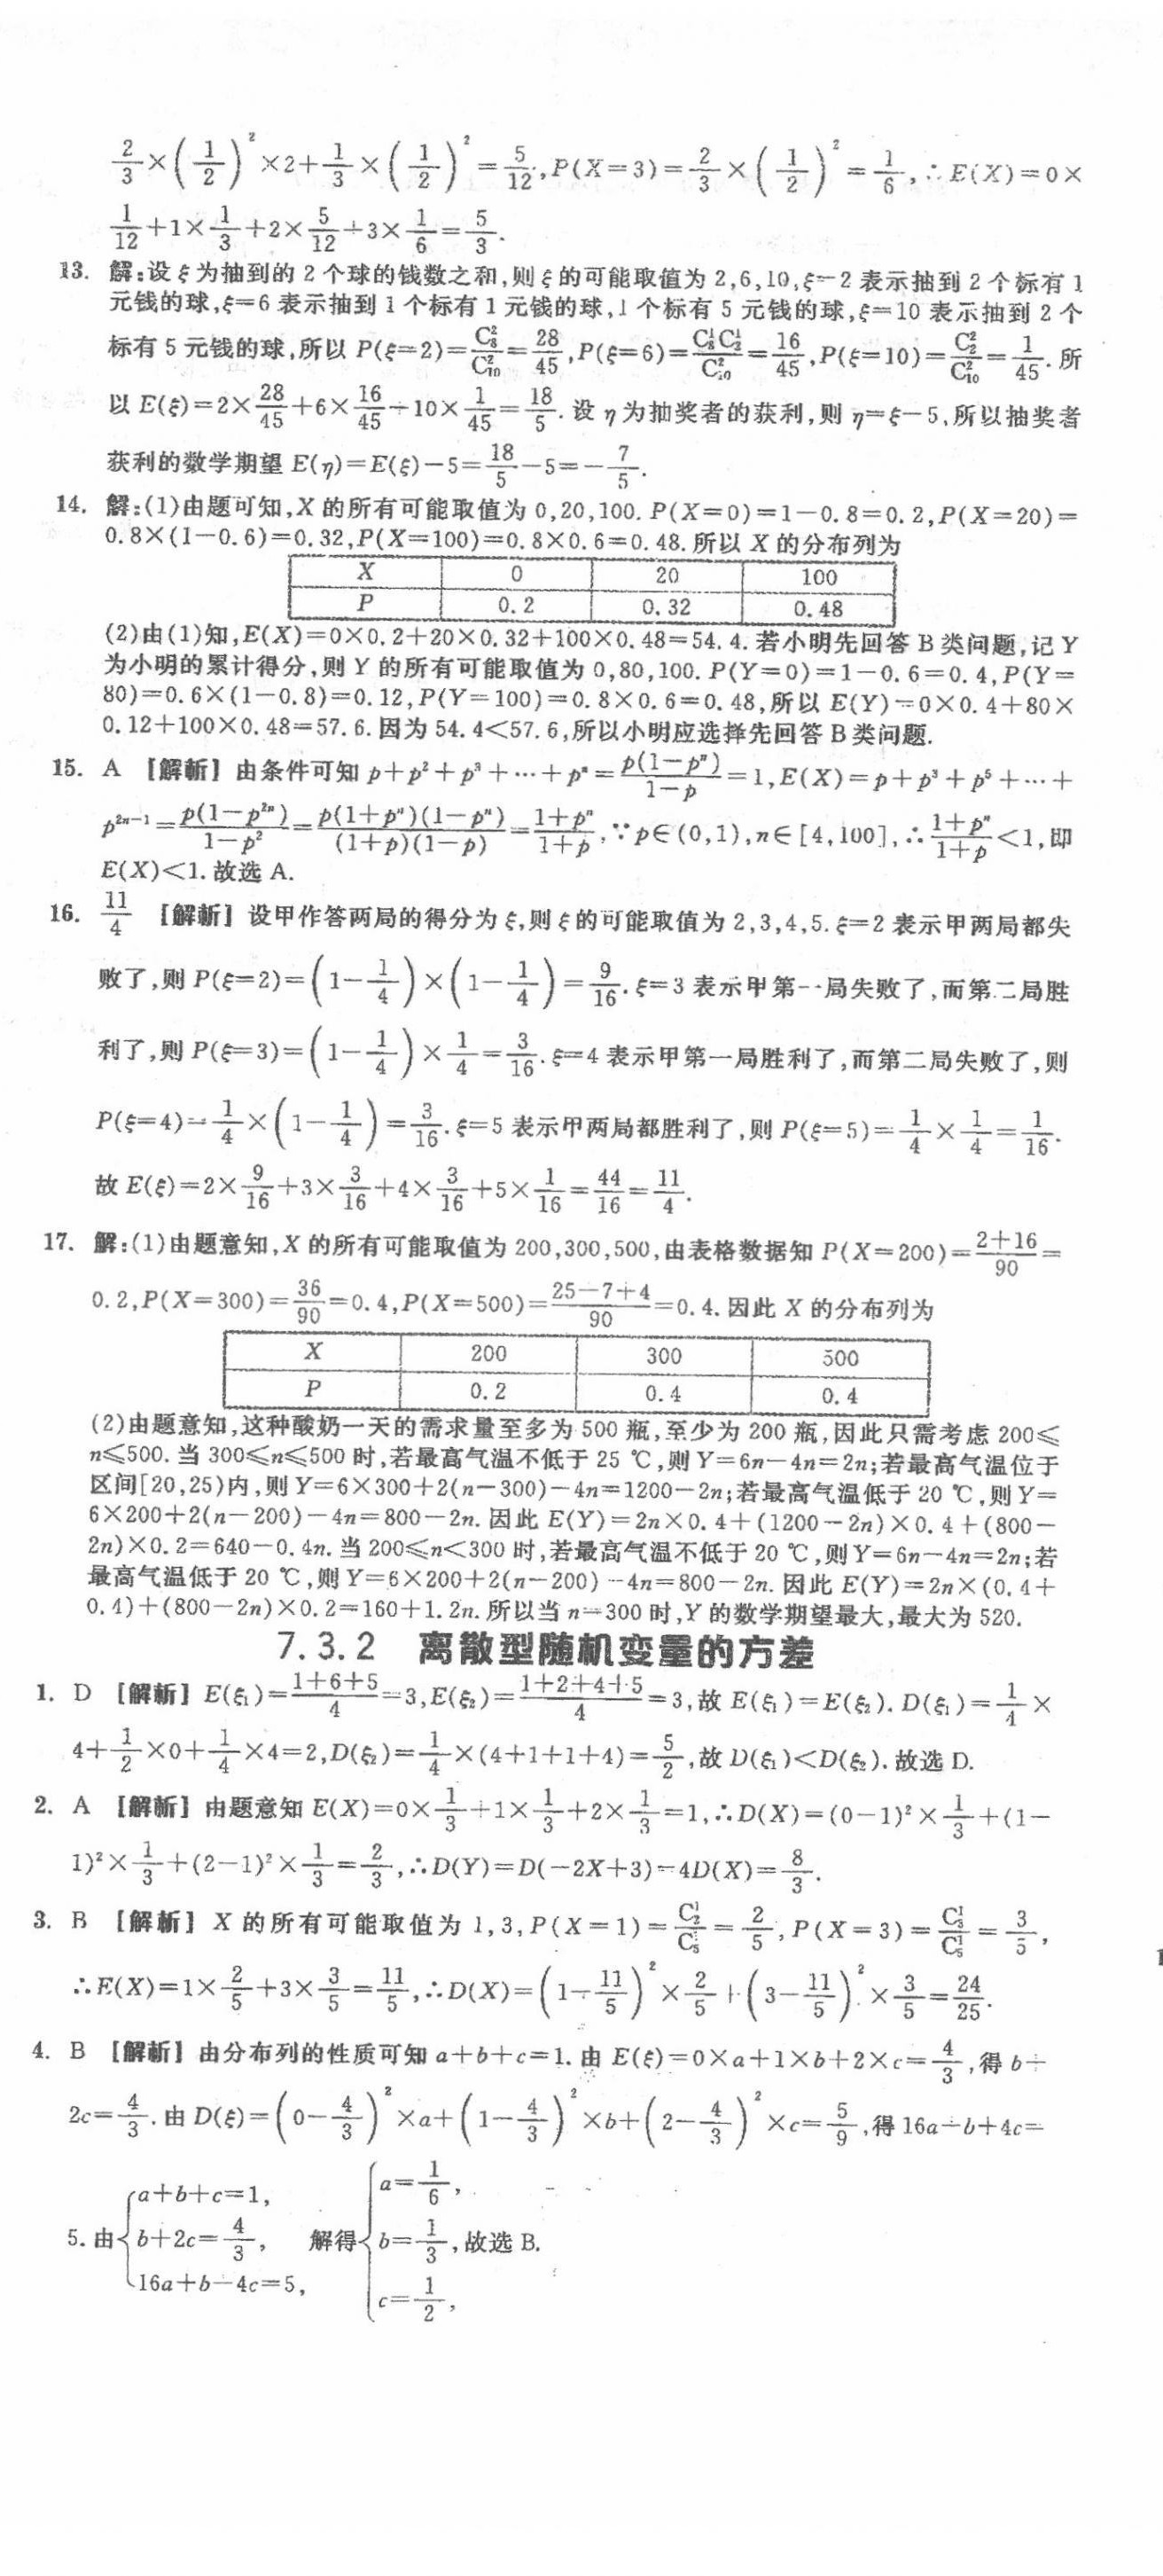 2/3×(1/2)²×2+1/3×(1/2)²=5/12,P(X=3)=2/3×(1/2)²=1/6,∴E(X)=0×
1/12+1×1/3+2×5/12+3×1/6=5/3.
13. 解:设ξ为抽到的2个球的钱数之和,则ξ的可能取值为2,6,10,ξ=2表示抽到2个标有1
元钱的球,ξ=6表示抽到1个标有1元钱的球,1个标有5元钱的球,ξ=10表示抽到2个
标有5元钱的球,所以P(ξ=2)=C₈²/C₁₀²=28/45,P(ξ=6)=C₈¹C₂¹/C₁₀²=16/45,P(ξ=10)=C₂²/C₁₀²=1/45.所
以E(ξ)=2×28/45+6×16/45+10×1/45=18/5.设η为抽奖者的获利,则η=ξ-5,所以抽奖者
获利的数学期望E(η)=E(ξ)-5=18/5-5=-7/5.
14. 解:(1)由题可知,X的所有可能取值为0,20,100.P(X=0)=1-0.8=0.2,P(X=20)=
0.8×(1-0.6)=0.32,P(X=100)=0.8×0.6=0.48.所以X的分布列为
X 0 20 100
P 0.2 0.32 0.48
(2)由(1)知,E(X)=0×0.2+20×0.32+100×0.48=54.4.若小明先回答B类问题,记Y
为小明的累计得分,则Y的所有可能取值为0,80,100.P(Y=0)=1-0.6=0.4,P(Y=
80)=0.6×(1-0.8)=0.12,P(Y=100)=0.8×0.6=0.48,所以E(Y)=0×0.4+80×
0.12+100×0.48=57.6.因为54.4<57.6,所以小明应选择先回答B类问题.
15. A 【解析】由条件可知p+p²+p³+…+pⁿ=p(1-pⁿ)/(1-p)=1,E(X)=p+p³+p⁵+…+
p²ⁿ⁻¹=p(1-p²ⁿ)/(1-p²)=p(1+pⁿ)(1-pⁿ)/((1+p)(1-p))=(1+pⁿ)/(1+p),∵p∈(0,1),n∈[4,100],∴(1+pⁿ)/(1+p)<1,即
E(X)<1.故选A.
16. 11/4 【解析】设甲作答两局的得分为ξ,则ξ的可能取值为2,3,4,5.ξ=2表示甲两局都失
败了,则P(ξ=2)=(1-1/4)×(1-1/4)=9/16.ξ=3表示甲第一局失败了,而第二局胜
利了,则P(ξ=3)=(1-1/4)×1/4=3/16.ξ=4表示甲第一局胜利了,而第二局失败了,则
P(ξ=4)=1/4×(1-1/4)=3/16.ξ=5表示甲两局都胜利了,则P(ξ=5)=1/4×1/4=1/16.
故E(ξ)=2×9/16+3×3/16+4×3/16+5×1/16=44/16=11/4.
17. 解:(1)由题意知,X的所有可能取值为200,300,500,由表格数据知P(X=200)=(2+16)/90=
0.2,P(X=300)=36/90=0.4,P(X=500)=(25+7+4)/90=0.4.因此X的分布列为
X 200 300 500
P 0.2 0.4 0.4
(2)由题意知,这种酸奶一天的需求量至多为500瓶,至少为200瓶,因此只需考虑200≤
n≤500.当300≤n≤500时,若最高气温不低于25 ℃,则Y=6n-4n=2n;若最高气温位于
区间[20,25)内,则Y=6×300+2(n-300)-4n=1200-2n;若最高气温低于20 ℃,则Y=
6×200+2(n-200)-4n=800-2n.因此E(Y)=2n×0.4+(1200-2n)×0.4+(800-
2n)×0.2=640-0.4n.当200≤n<300时,若最高气温不低于20 ℃,则Y=6n-4n=2n;若
最高气温低于20 ℃,则Y=6×200+2(n-200)-4n=800-2n.因此E(Y)=2n×(0.4+
0.4)+(800-2n)×0.2=160+1.2n.所以当n=300时,Y的数学期望最大,最大为520.
7.3.2 离散型随机变量的方差
1. D 【解析】E(ξ₁)=(1+6+5)/4=3,E(ξ₂)=(1+2+4+5)/4=3,故E(ξ₁)=E(ξ₂).D(ξ₁)=1/4×
4+1/2×0+1/4×4=2,D(ξ₂)=1/4×(4+1+1+4)=5/2,故D(ξ₁)<D(ξ₂).故选D.
2. A 【解析】由题意知E(X)=0×1/3+1×1/3+2×1/3=1,∴D(X)=(0-1)²×1/3+(1-
1)²×1/3+(2-1)²×1/3=2/3,∴D(Y)=D(-2X+3)=4D(X)=8/3.
3. B 【解析】X的所有可能取值为1,3,P(X=1)=C₂¹/C₅¹=2/5,P(X=3)=C₃¹/C₅¹=3/5,
∴E(X)=1×2/5+3×3/5=11/5,∴D(X)=(1-11/5)²×2/5+(3-11/5)²×3/5=24/25.
4. B 【解析】由分布列的性质可知a+b+c=1.由E(ξ)=0×a+1×b+2×c=4/3,得b+
2c=4/3.由D(ξ)=(0-4/3)²×a+(1-4/3)²×b+(2-4/3)²×c=5/9,得16a+b+4c=
5.由{a+b+c=1, b+2c=4/3, 16a+b+4c=5, 解得{a=1/6, b=1/3, c=1/2, 故选B.